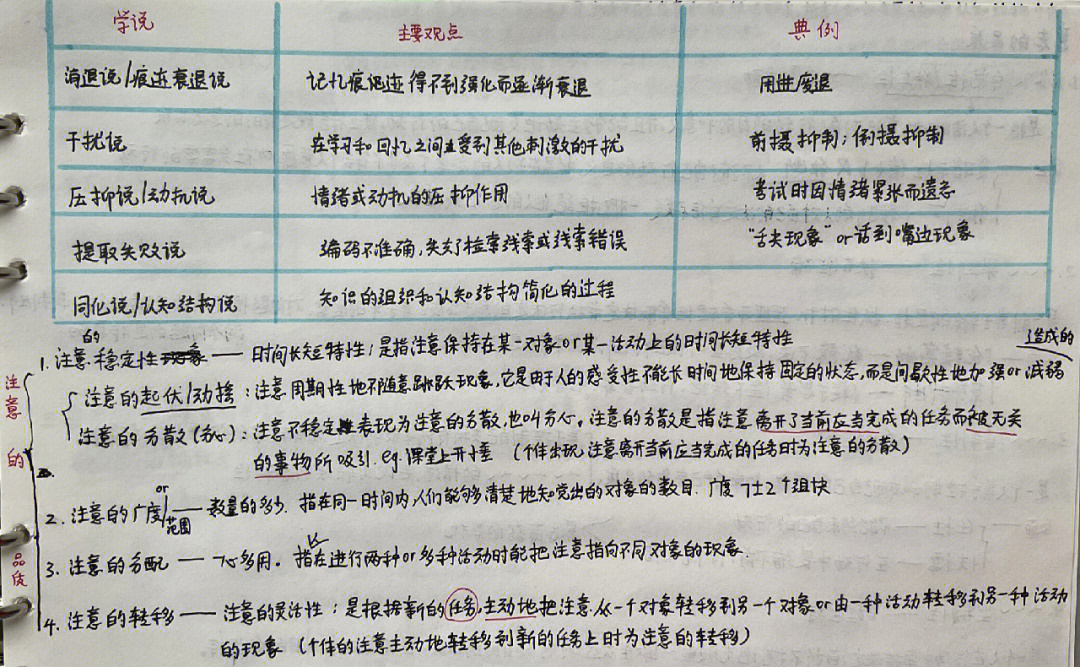 学说 主要观点 典例
消退说/痕迹衰退说 记忆痕迹得不到强化而逐渐衰退 用进废退
干扰说 在学习和回忆之间受到其他刺激的干扰 前摄抑制；倒摄抑制
压抑说/动机说 情绪或动机的压抑作用 考试时因情绪紧张而遗忘
提取失败说 编码不准确，失去了检索线索或线索错误 “舌尖现象”or话到嘴边现象
同化说/认知结构说 知识的组织和认知结构简化的过程
注意的品质
1. 注意的稳定性 —— 时间长短特性；是指注意保持在某一对象or某一活动上的时间长短特性
注意的起伏/动摇：注意周期性地不随意跳跃现象，它是由于人的感受性不能长时间地保持固定的状态，而是间歇性地加强or减弱造成的
注意的分散（分心）：注意不稳定性表现为注意的分散，也叫分心。注意的分散是指注意离开了当前应当完成的任务而被无关
的事物所吸引. eg.课堂上开小差 （个体出现注意离开当前应当完成的任务时为注意的分散）
2. 注意的广度or范围 —— 数量的多少. 指在同一时间内人们能够清楚地知觉出的对象的数目. 广度 7±2个组块
3. 注意的分配 —— 一心多用。指在进行两种or多种活动时能把注意指向不同对象的现象.
4. 注意的转移 —— 注意的灵活性：是根据新的任务，主动地把注意从一个对象转移到另一个对象or由一种活动转移到另一种活动
的现象（个体的注意主动地转移到新的任务上时为注意的转移）